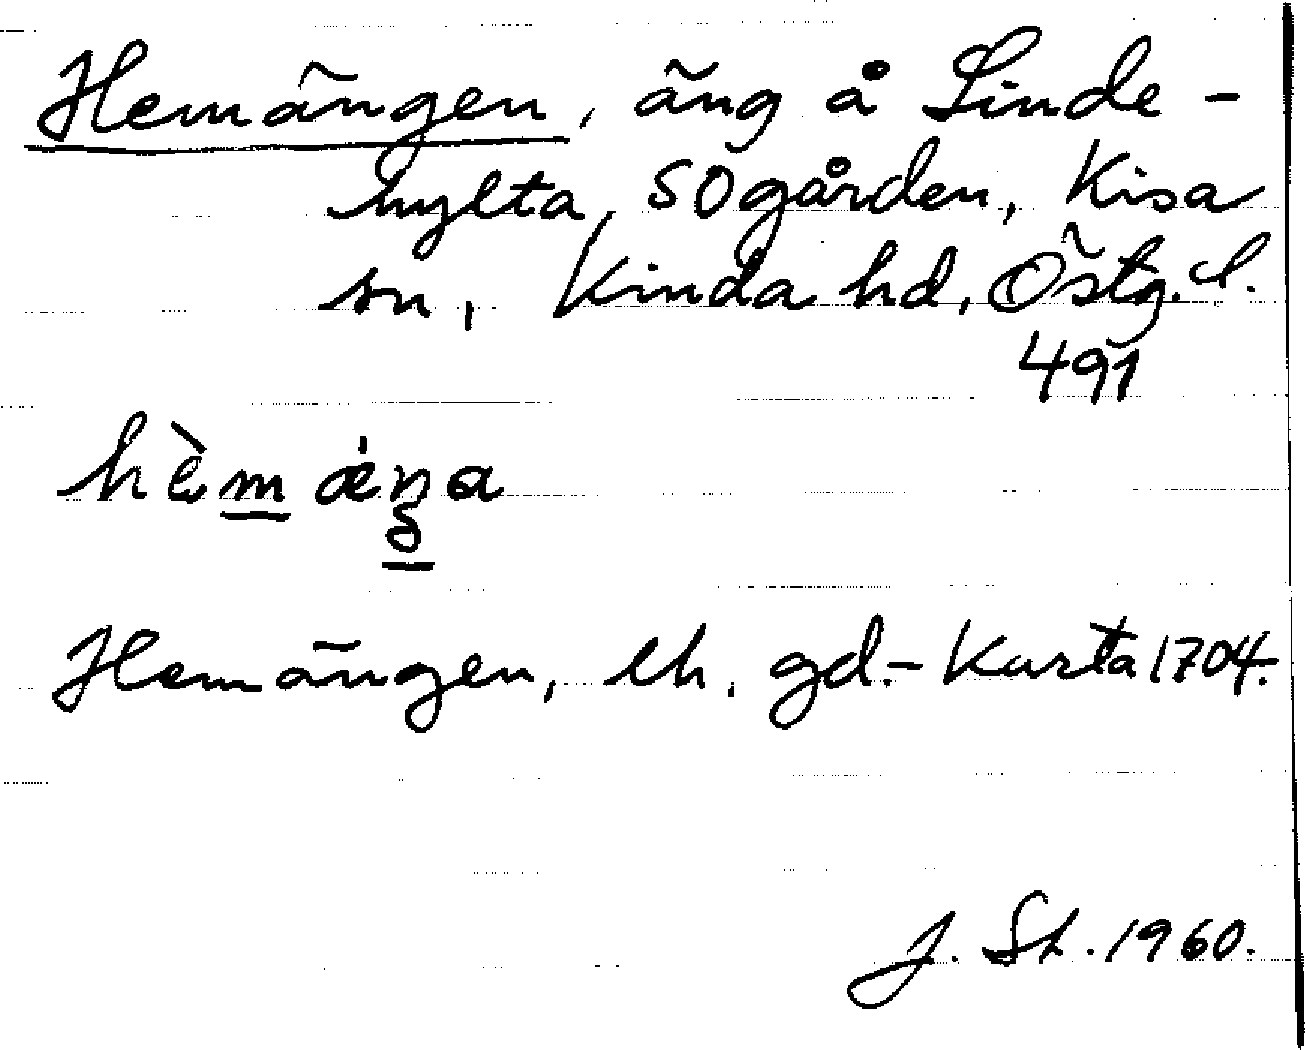 Hemängen, äng å Linde-
hylta, SÖgården, Kisa
sn, Kinda hd, Östg. l.
491
Hemängen, lh. gd.- Karta 1704.
J. St. 1960.